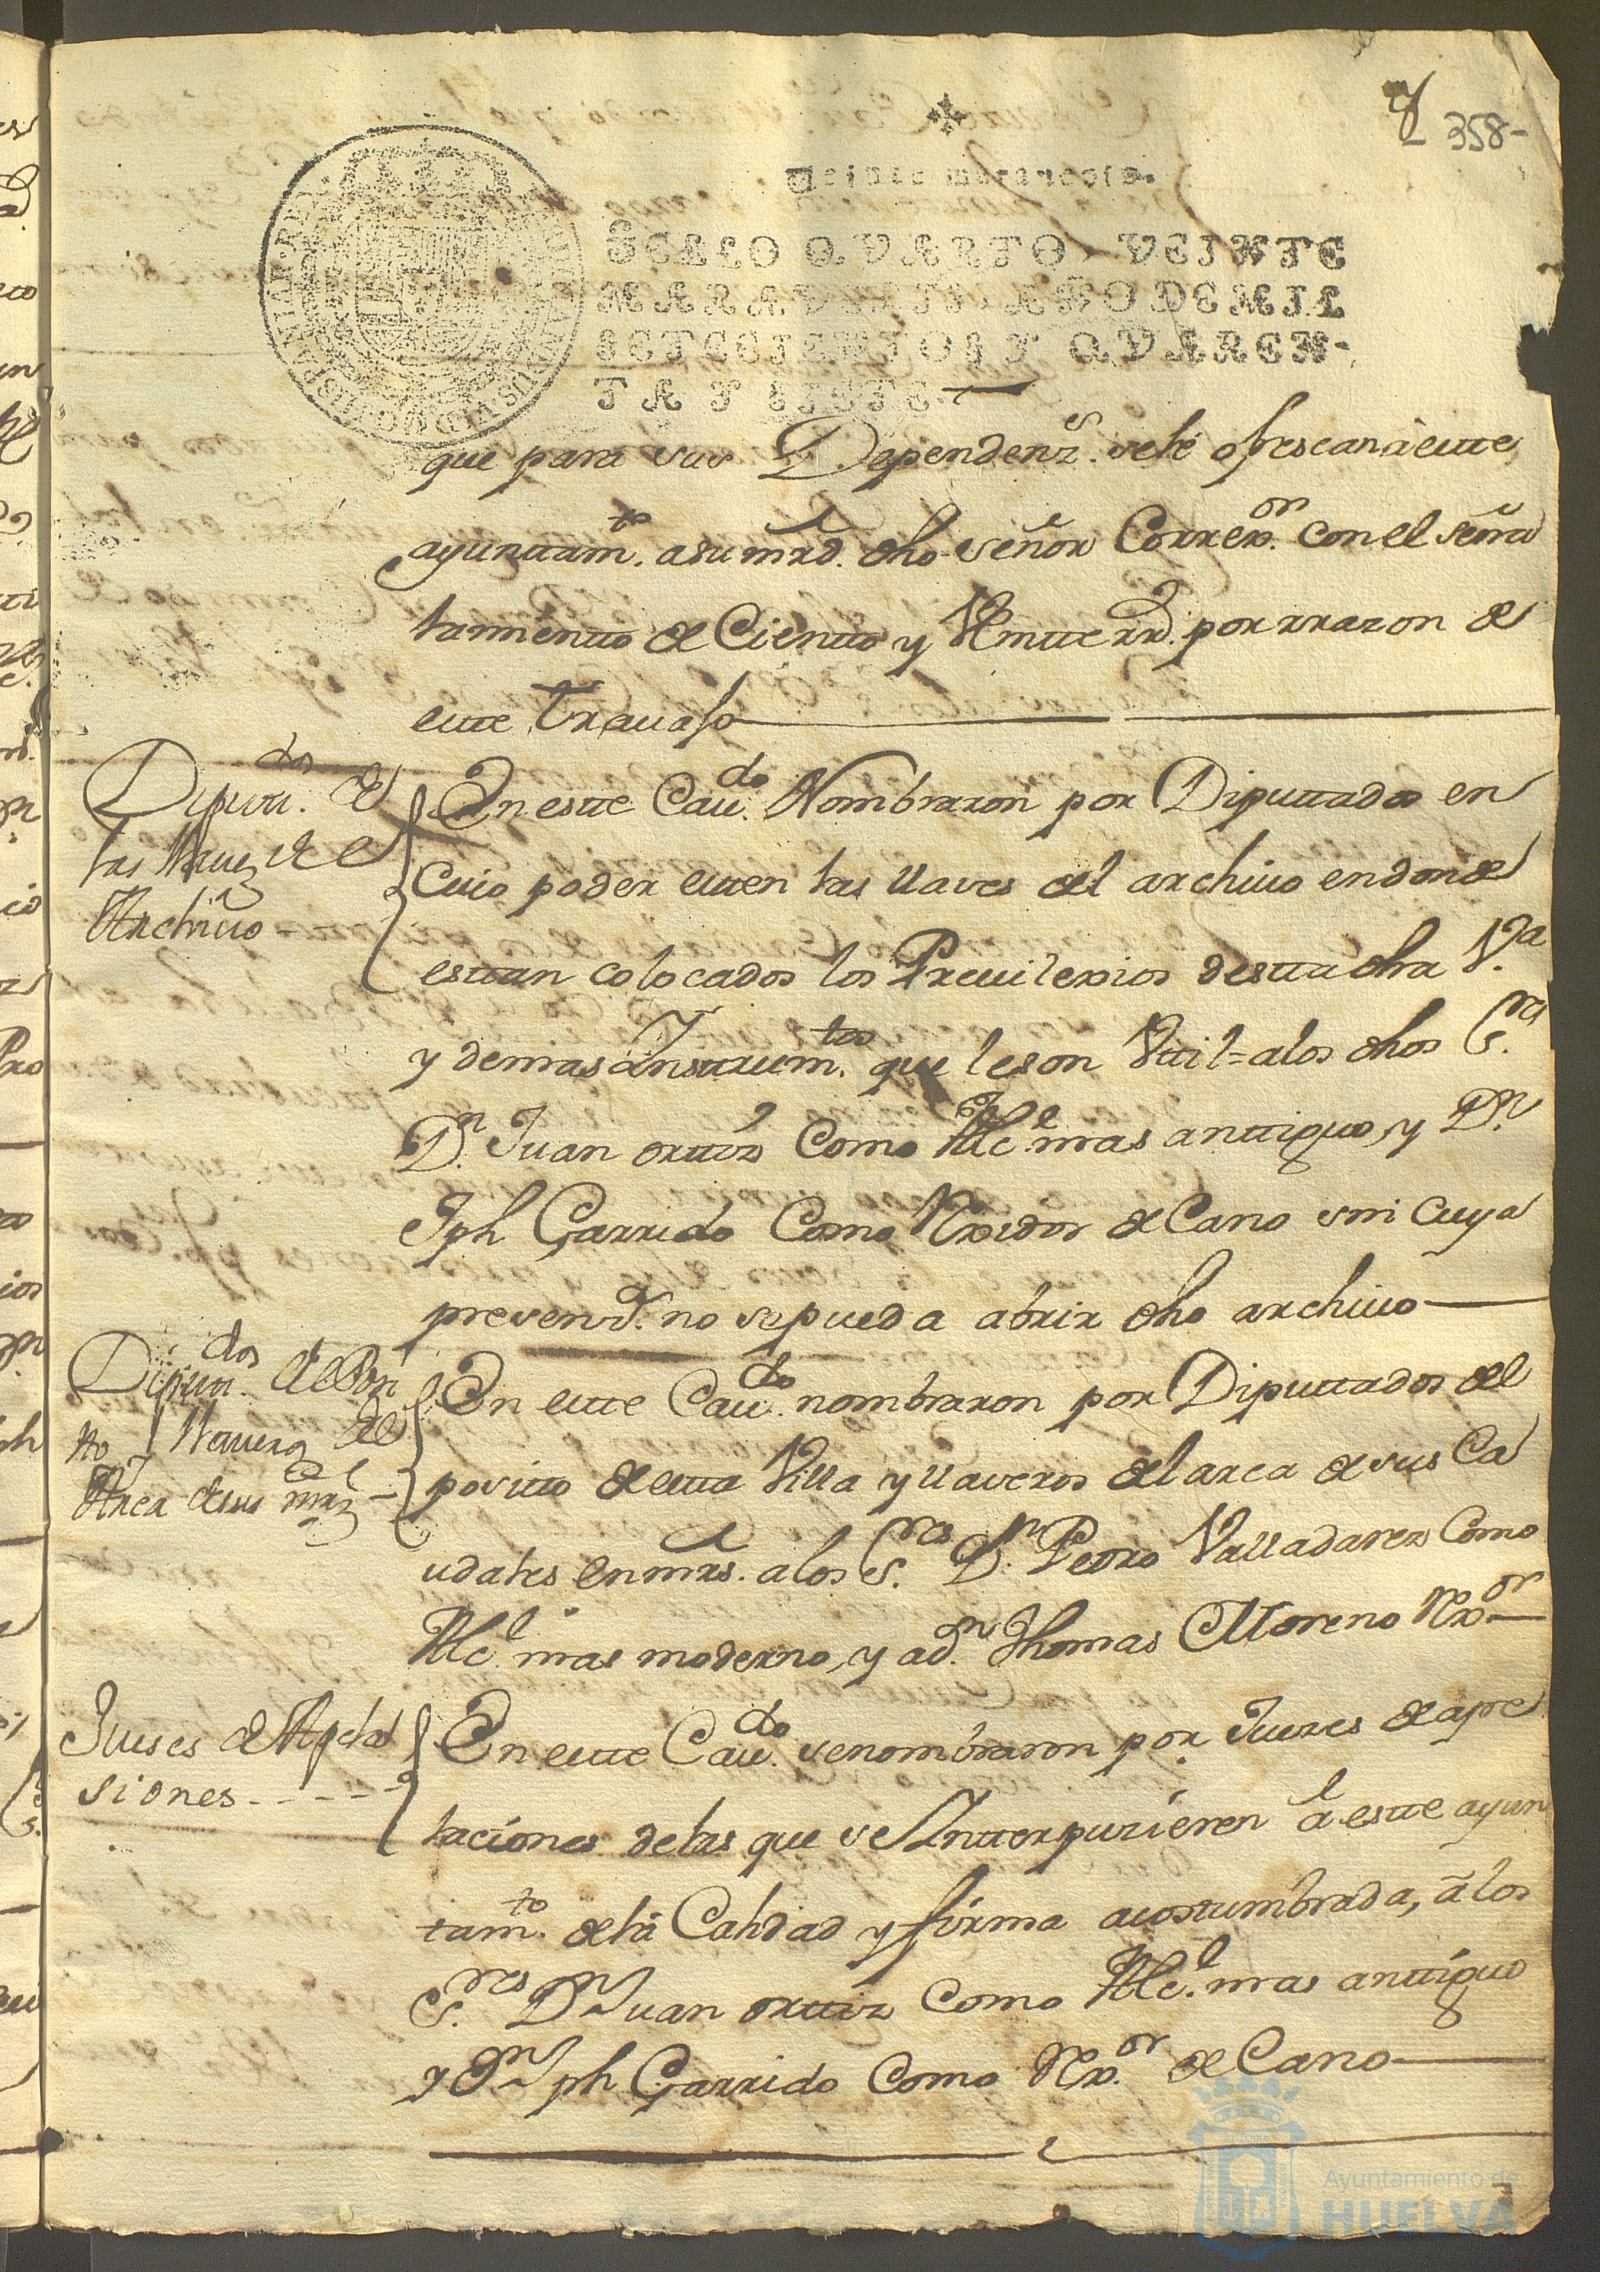 358-
Veinte maravedis.
SELLO QVARTO, VEINTE
MARAVEDIS, AÑO DE MIL
SETECIENTOS Y QVAREN-
TA Y SIETE.
que para sus Dependenz.s sele ofrescan à este
ayuntam.to a su mrd. dho señor Correx.or con el señra
lamiento de Ciento y Veinte rrs. por rrazon de
este travaxo
Diputa.dos de
las llaues del
Archiuo
En este Cau.do Nombraron por Diputtados en
Cuio poder esten las llaves del archiuo en donde
esttan colocados los Preuilexios desta dha V.a
y demas Instrum.tos que le son Vttil=a los dhos S.res
D.n Juan orttiz Como Alc.e mas anttiguo, y D.n
Jph Garrido Como Rexidor deCano sin cuya
presenz.a no se pueda abrir dho archiuo
Diputa.dos del Posi
to y llaueros del
Arca de sus mrs
En este Cau.do nombraron por Diputtados del
positto de esta Villa y llaveros del arca de sus Ca
udales en mrs. a los S.res D.n Pedro Valladares Como
Alc.e mas moderno, y a d.n Thomas Moreno Rx.or
Jueses de Apela
siones
En este Cau.do se nombraron por Jueces de ape
laciones de las que se Intterpusieren a este ayun
tam.to de la Calidad y forma acostumbrada, à los
S.res D.n Juan orttiz Como Alc.e mas anttiguo
y D.n Jph Garrido Como Rx.or de Cano
Ayuntamiento de
HUELVA